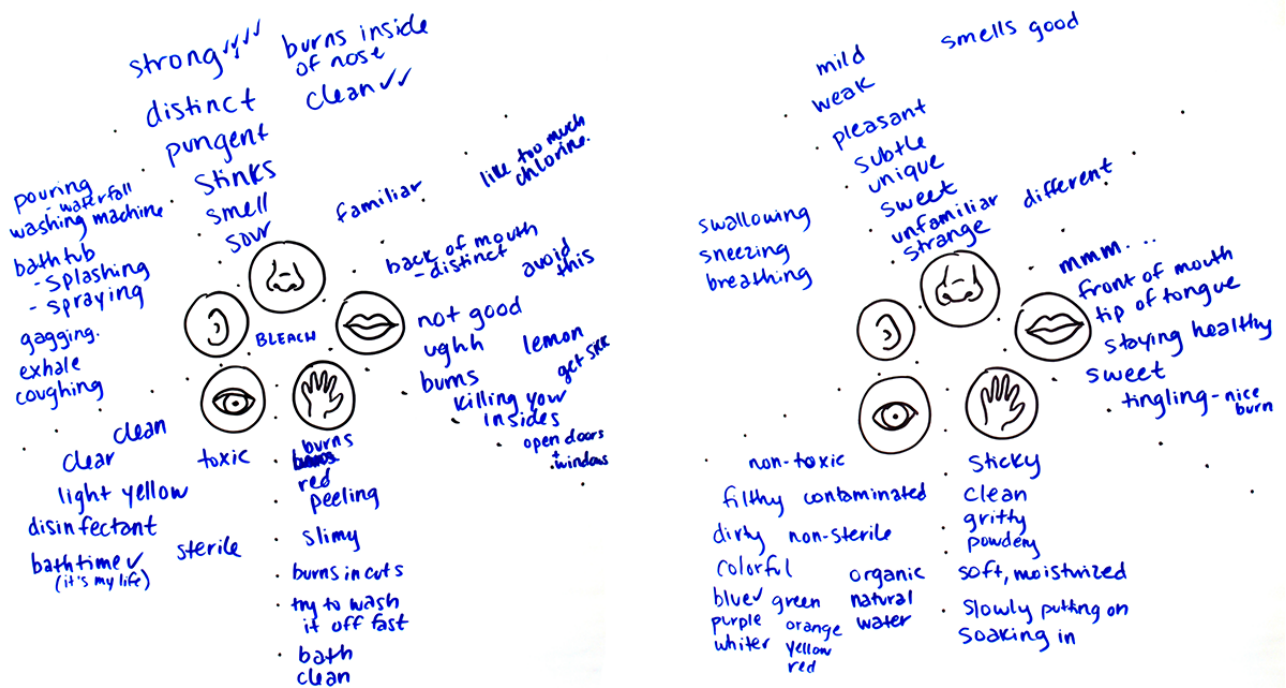 strong ✓✓✓✓
burns inside
of nose
distinct
clean ✓✓
pungent
stinks
smell
sour
familiar
like too much
chlorine.
pouring
- waterfall
washing machine
bathtub
- splashing
- spraying
gagging.
exhale
coughing
BLEACH
back of mouth
- distinct
avoid
this
not good
ughh
lemon
burns
get sick
killing your
insides
open doors
+
windows
clean
clear
toxic
light yellow
disinfectant
bath time ✓
(it's my life)
sterile
burns
red
peeling
slimy
burns in cuts
try to wash
it off fast
bath
clean
mild
smells good
weak
pleasant
subtle
unique
sweet
unfamiliar
different
strange
swallowing
sneezing
breathing
mmm...
front of mouth
tip of tongue
staying healthy
sweet
tingling - nice
burn
non-toxic
filthy contaminated
dirty non-sterile
colorful
organic
blue ✓ green
natural
purple orange
water
whiter yellow
red
sticky
clean
gritty
powdery
soft, moisturized
slowly putting on
soaking in